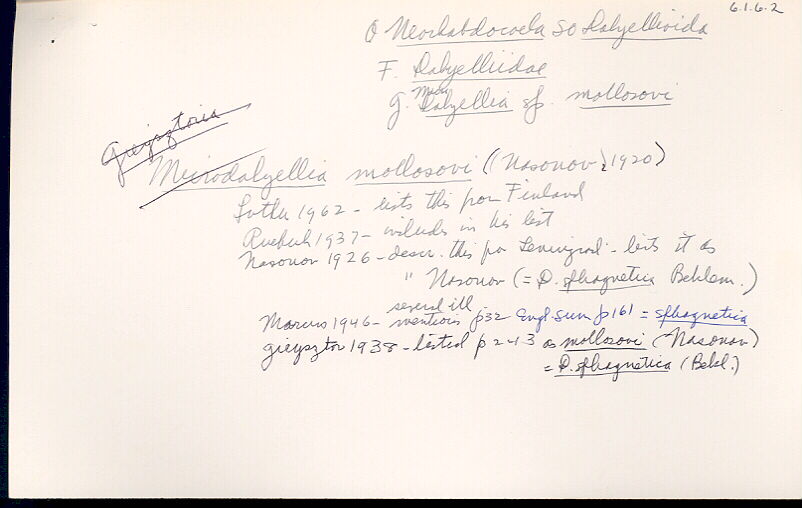 6.1.6.2
O Neorhabdocoela SO Dalyellioida
F. Dalyelliidae
Micro
g. Dalyellia sp. mollosovi
Gieysztoria
Microdalyellia mollosovi (Nasonov, 1920)
Luther 1962 - lists this from Finland
Ruebush 1937 - includes in his list
Nasonov 1926 - descr. this fr Leningrad - lists it as
" Nasonov (= D. sphagnetica Beklem.)
several ill.
Marcus 1946 - mentions p32 Engl. sum p161 = sphagnetica
gieysztor 1938 - listed p 243 as mollosovi (Nasonov)
= D. sphagnetica (Bekl.)